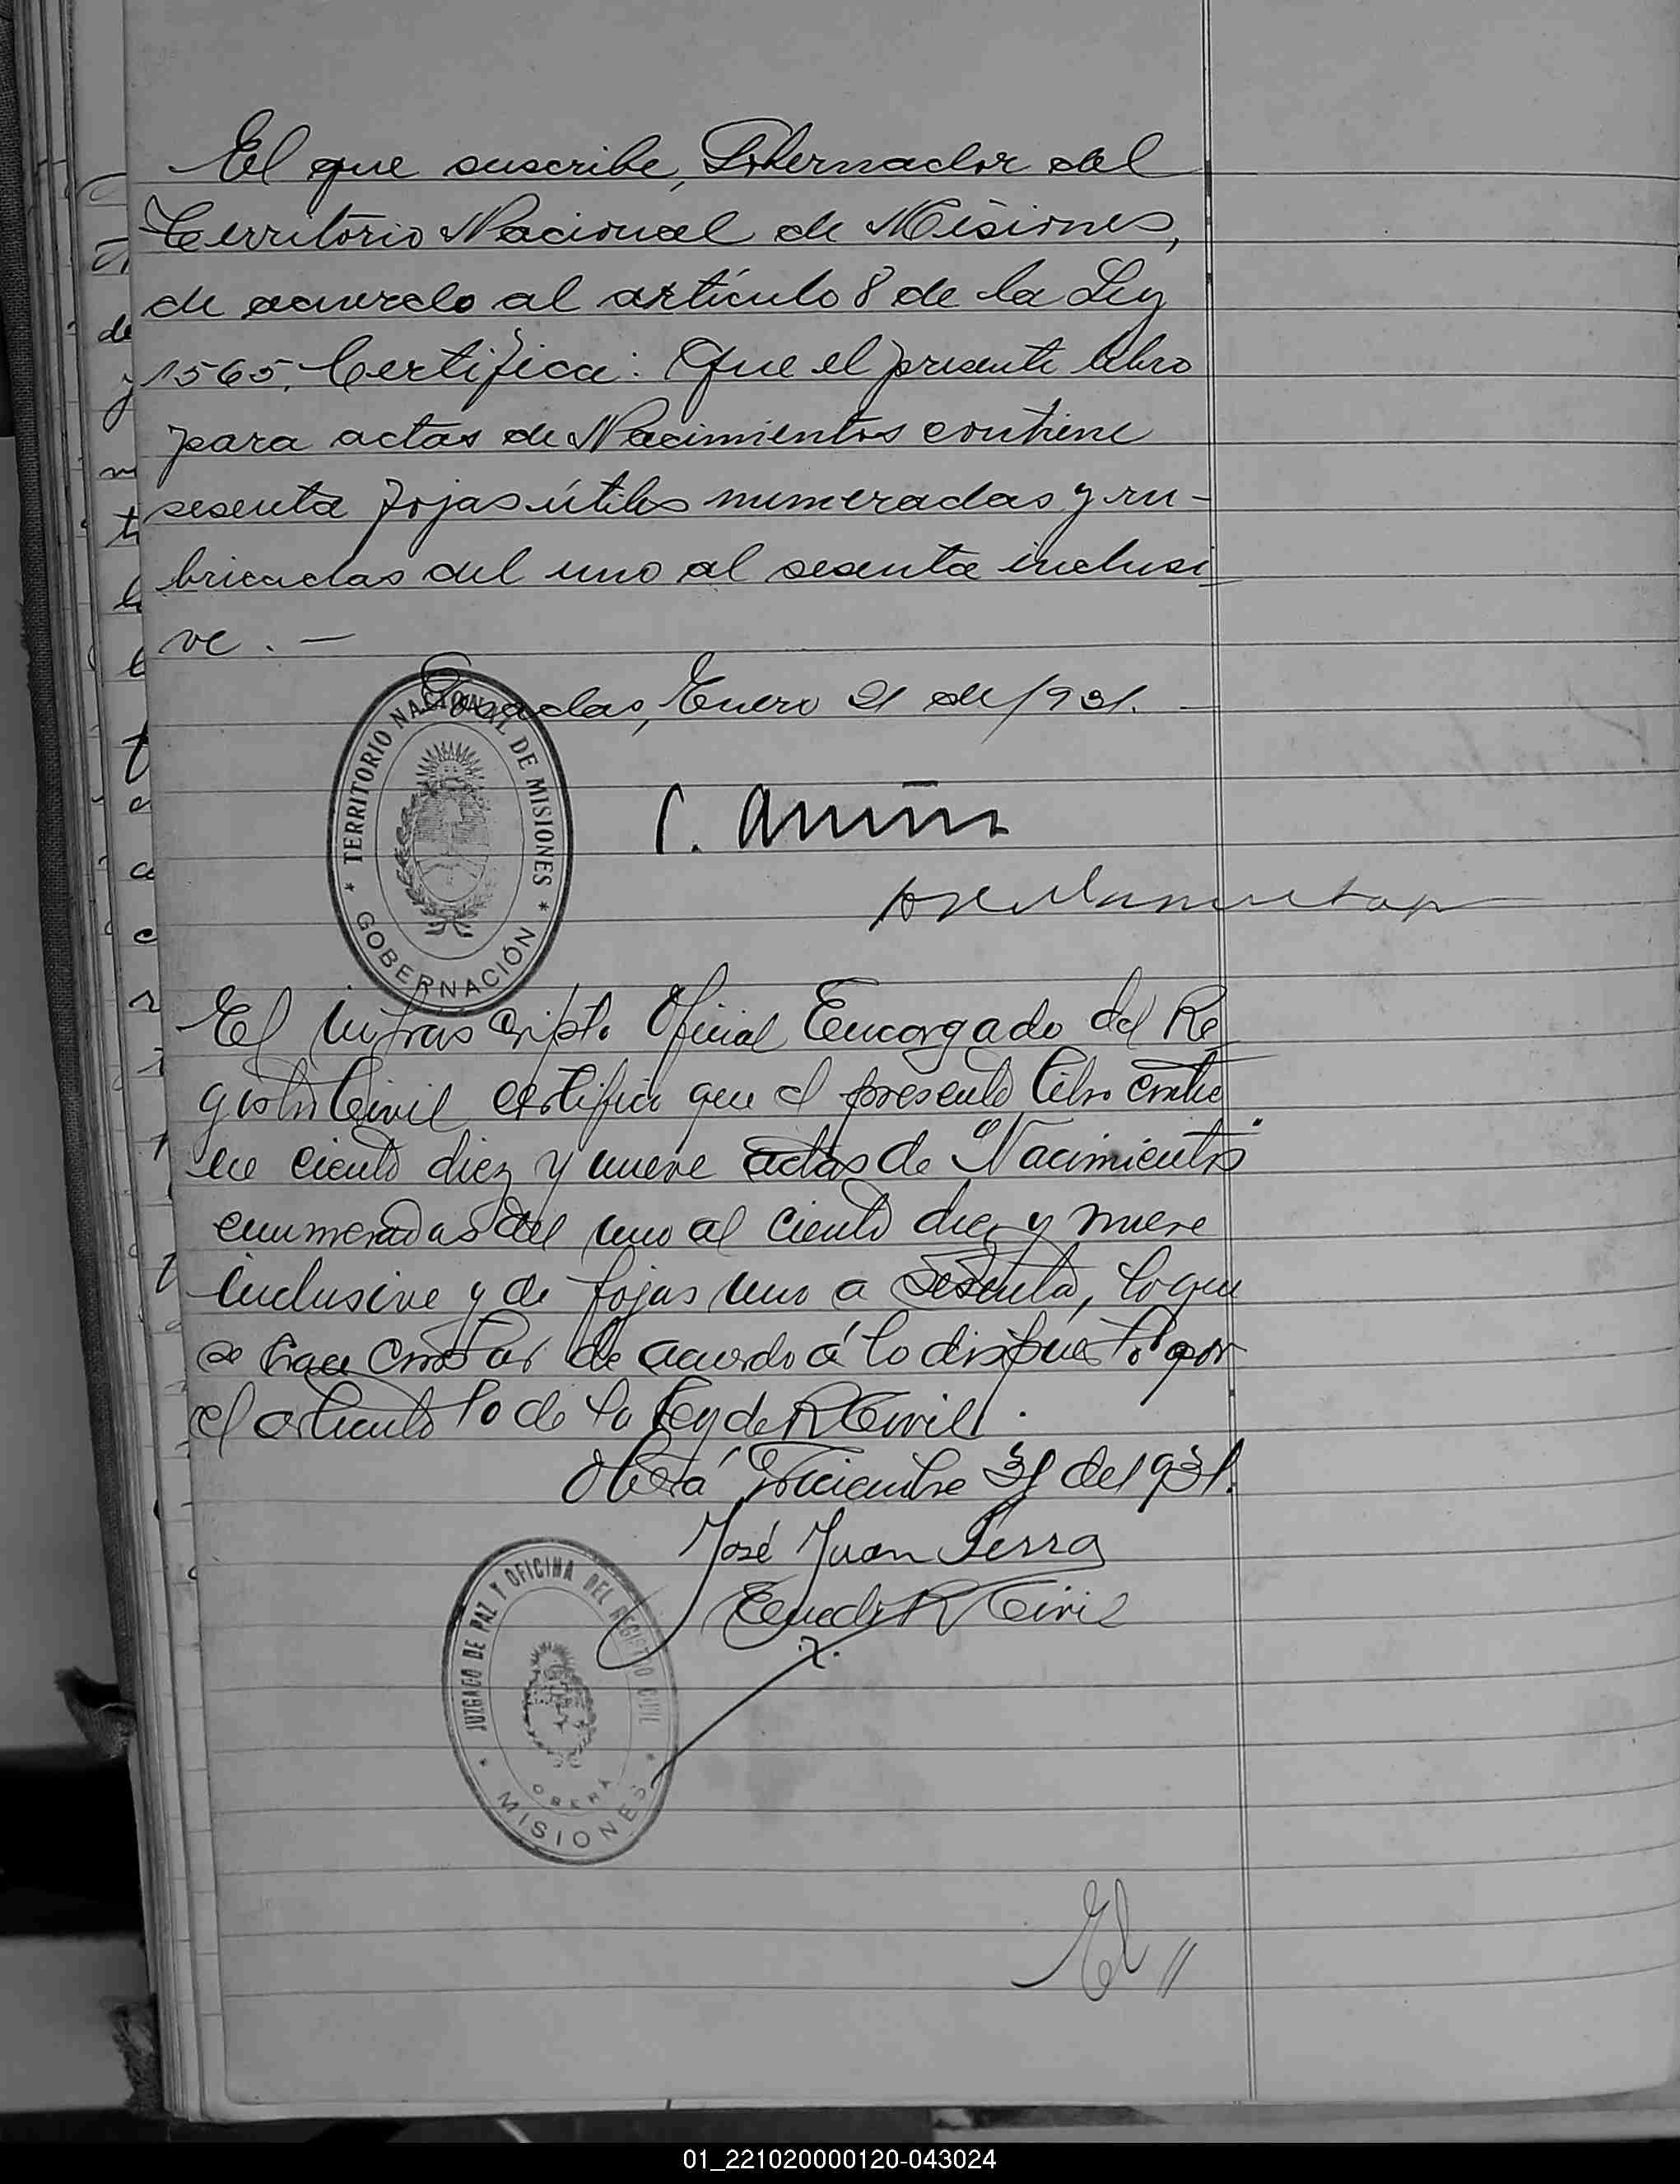 El que suscribe, Gobernador del
Territorio Nacional de Misiones,
de acuerdo al artículo 8 de la Ley
1565, Certifica: Que el presente libro
para actas de Nacimientos contiene
sesenta fojas útiles numeradas y ru-
bricadas del uno al sesenta inclusi
ve. —
Posadas, Enero 21 de 1931. -
TERRITORIO NACIONAL DE MISIONES
* GOBERNACIÓN *
El infrascripto Oficial Encargado del Re
gistro Civil certifica que el presente libro contie
ne ciento diez y nueve actas de Nacimientos
enumeradas del uno al ciento diez y nueve
inclusive y de fojas uno a sesenta, lo que
se hace constar de acuerdo á lo dispuesto por
el articulo 10 de la Ley de R Civil.
Oberá Diciembre 31 del 931.
José Juan Serra
R Civil
JUZGADO DE PAZ Y OFICINA DEL REGISTRO CIVIL
OBERÁ
* MISIONES *
El //
01_221020000120-043024